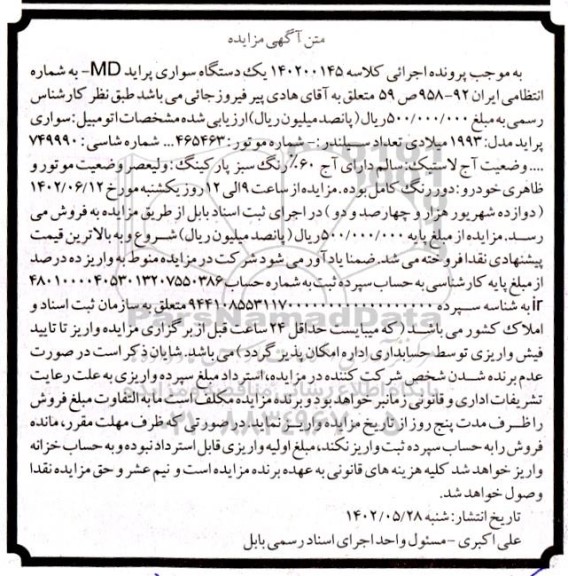 متن آگهی مزایده
به موجب پرونده اجرائی کلاسه ۱۴۰۲۰۰۱۴۵ یک دستگاه سواری پراید MD- به شماره
انتظامی ایران ۹۲-۹۵۸ص ۵۹ متعلق به آقای هادی پیر فیروزجائی می باشد طبق نظر کارشناس
رسمی به مبلغ ۵۰۰/۰۰۰/۰۰۰ریال (پانصد میلیون ریال) ارزیابی شده مشخصات اتومبیل: سواری
پراید مدل: ۱۹۹۳ میلادی تعداد سیلندر: - شماره موتور: ۴۶۵۴۶۳... شماره شاسی: ۷۴۹۹۹۰
.... وضعیت آج لاستیک: سالم دارای آج ۶۰٪ رنگ سبز پارکینگ: ولیعصر وضعیت موتور و
ظاهری خودرو: دور رنگ کامل بوده. مزایده از ساعت ۹ الی ۱۲ روز یکشنبه مورخ ۱۴۰۲/۰۶/۱۲
(دوازده شهریور هزار و چهارصد و دو) در اجرای ثبت اسناد بابل از طریق مزایده به فروش می
رسد. مزایده از مبلغ پایه ۵۰۰/۰۰۰/۰۰۰ریال (پانصد میلیون ریال) شروع و به بالاترین قیمت
پیشنهادی نقدا فروخته می شد. ضمنا یادآور می شود شرکت در مزایده منوط به واریز ده درصد
از مبلغ پایه کارشناسی به حساب سپرده ثبت به شماره حساب ۴۸۰۱۰۰۰۰۴۰۵۳۰۱۳۲۰۷۵۵۰۳۸۶
ir به شناسه سپرده متعلق به سازمان ثبت اسناد و
املاک کشور می باشد (که میبایست حداقل ۲۴ ساعت قبل از برگزاری مزایده واریز تا تایید
فیش واریزی توسط حسابداری اداره امکان پذیر گردد) می باشد. شایان ذکر است در صورت
عدم برنده شدن شخص شرکت کننده در مزایده، استرداد مبلغ سپرده واریزی به علت رعایت
تشریفات اداری و قانونی زمانبر خواهد بود و برنده مزایده مکلف است ما به التفاوت مبلغ فروش
را ظرف مدت پنج روز از تاریخ مزایده واریز نماید. در صورتی که ظرف مهلت مقرر، مانده
فروش را به حساب سپرده ثبت واریز نکند، مبلغ اولیه واریزی قابل استرداد نبوده و به حساب خزانه
واریز خواهد شد کلیه هزینه های قانونی به عهده برنده مزایده است و نیم عشر و حق مزایده نقدا
وصول خواهد شد.
تاریخ انتشار: شنبه ۱۴۰۲/۰۵/۲۸
علی اکبری - مسئول واحد اجرای اسناد رسمی بابل
ParsNamadData